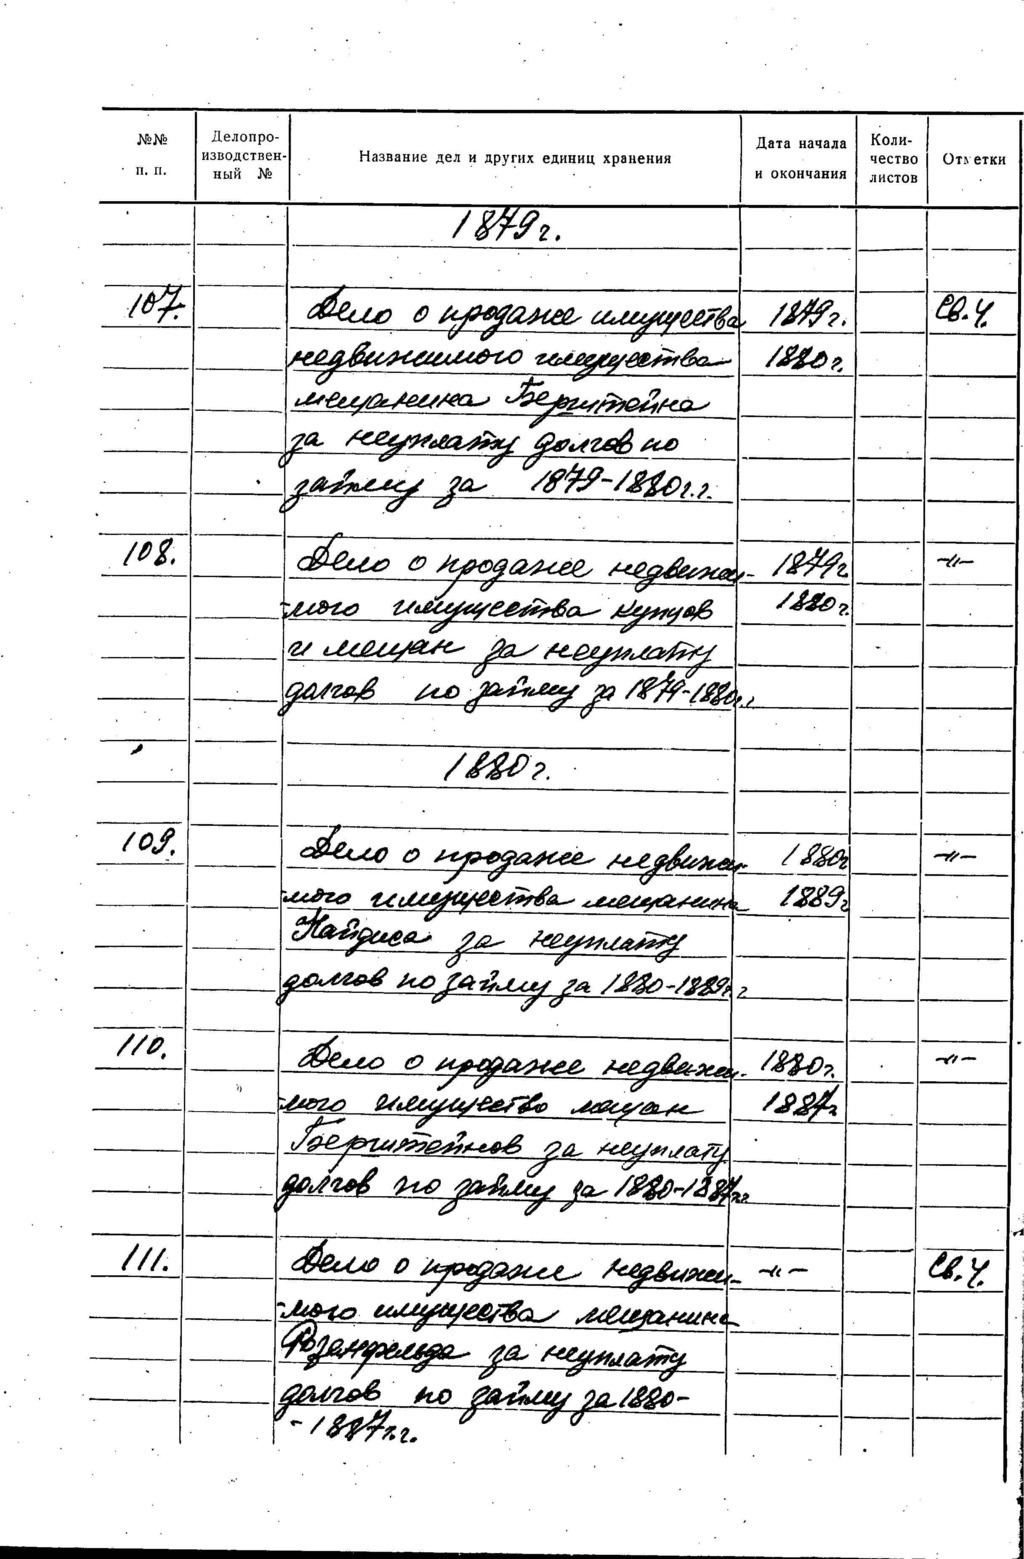 №№ п. п. Делопроизводственный № Название дел и других единиц хранения Дата начала и окончания Количество листов Отметки
1879 г.
107. Дело о продаже имущества 1879 г. Св. 4.
недвижимого имущества 1880 г.
мещанина Бергштейна
за неуплату долгов по
займу за 1879-1880 г.г.
108. Дело о продаже недвижи- 1879 г. -"-
-мого имущества купцов 1880 г.
и мещан за неуплату
долгов по займу за 1879-1880 г.г.
1880 г.
109. Дело о продаже недвижи- 1880 г. -"-
-мого имущества мещанина 1889 г.
Найдиса за неуплату
долгов по займу за 1880-1889 г.г.
110. Дело о продаже недвижи- 1880 г. -"-
-мого имущество мещан 1887 г.
Бергштейнов за неуплату
долгов по займу за 1880-1887 г.г.
111. Дело о продаже недвижи- -"- Св. 4.
-мого имущества мещанина
Розенфельда за неуплату
долгов по займу за 1880-
-1887 г.г.